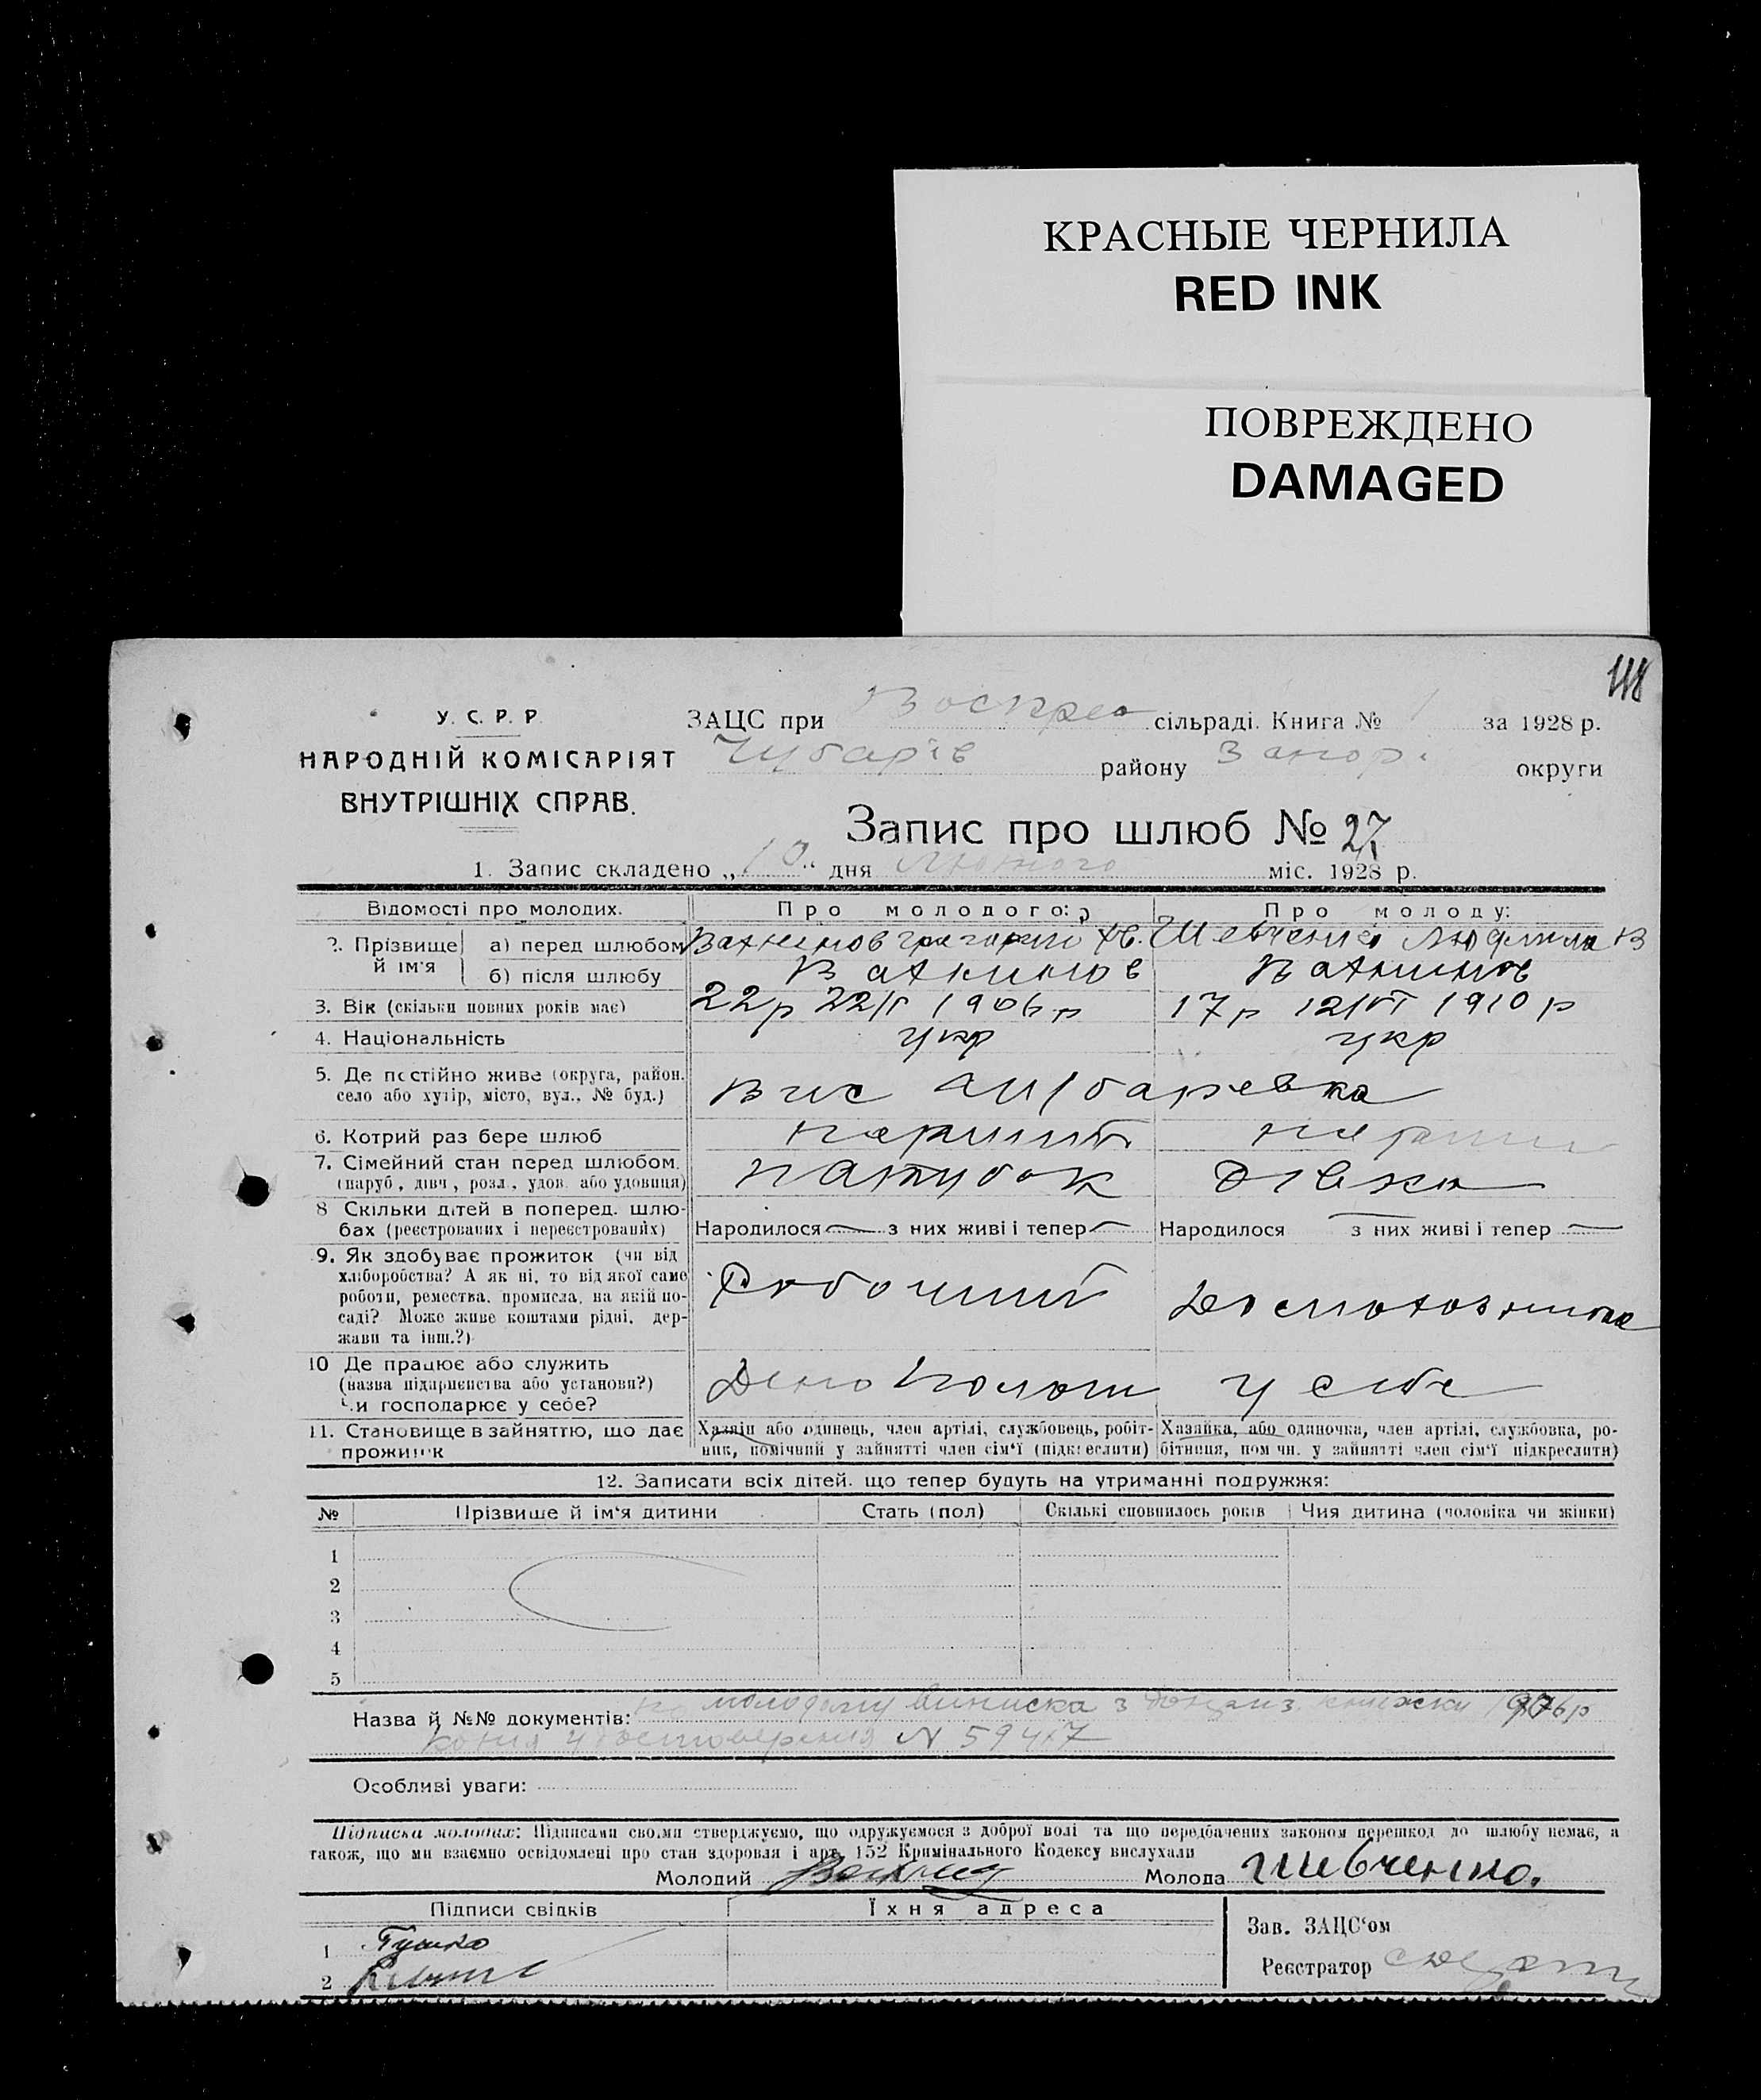 КРАСНЫЕ ЧЕРНИЛА
RED INK
ПОВРЕЖДЕНО
DAMAGED
118
У. С. Р. Р.
НАРОДНІЙ КОМІСАРІЯТ
ВНУТРІШНІХ СПРАВ.
ЗАЦС при Воскрес сільраді. Книга № 1 за 1928 р.
Чубарів району Запор. округи
Запис про шлюб № 27
1. Запис складено „10“ дня лютого міс. 1928 р.
Відомості про молодих. Про молодого: Про молоду:
2. Прізвище й ім'я а) перед шлюбом Вахнинов Григорий Шевченко Людмила В
б) після шлюбу Вахнинов Вахнинов
3. Вік (скільки повних років має) 22р 22/I 1906 р 17р 12/VI 1910 р
4. Національність укр укр
5. Де постійно живе (округа, район, село або хутір, місто, вул., № буд.) Чубаревка
6. Котрий раз бере шлюб перший перший
7. Сімейний стан перед шлюбом. (паруб, дівч, розл., удов. або удовиця) парубок дівка
8 Скільки дітей в поперед. шлюбах (реєстрованих і нереєстрованих) Народилося — з них живі і тепер — Народилося — з них живі і тепер —
9. Як здобуває прожиток (чи від хліборобства? А як ні, то від якої саме роботи, ремества, промисла, на якій посаді? Може живе коштами рідні, держави та інш.?) Робочий
10 Де працює або служить (назва підприємства або установи?) Чи господарює у себе? Депо Пологи у себе
11. Становище в зайняттю, що дає прожиток Хазяїн або одинець, член артілі, службовець, робітник, помічний у зайнятті член сім'ї (підкреслити) Хазяйка, або одиночка, член артілі, службовка, робітниця, помічн. у зайнятті член сім'ї підкреслити)
12. Записати всіх дітей, що тепер будуть на утриманні подружжя:
№ Прізвище й ім'я дитини Стать (пол) Скількі сповнилось років Чия дитина (чоловіка чи жінки)
1
2
3
4
5
Назва й №№ документів: молодому виписка з книжки
копия удостоверения N 59417
Особливі уваги:
Підписка молодих: Підписами своїми стверджуємо, що одружуємося з доброї волі та що передбачених законом перешкод до шлюбу немає, а
також, що ми взаємно освідомлені про стан здоровля і арт. 152 Кримінального Кодексу вислухали
Молодий Молода Шевченко.
Підписи свідків Їхня адреса
Зав. ЗАЦС'ом
1 Гушко
2
Реєстратор